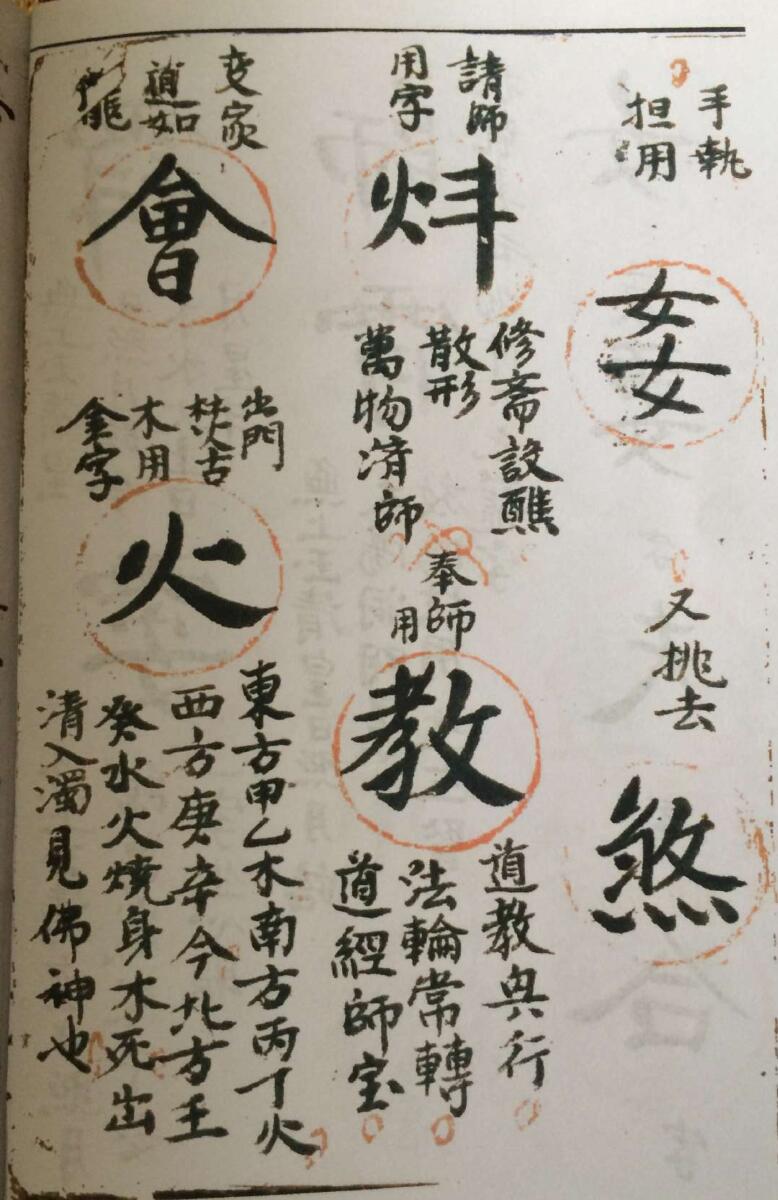 手執
担用
姦
又挑去
煞
請師
用字
炐
修斋設醮
散形
萬物济師
奉師
用
教
道教兴行
法輪常轉
道經師宝
变家
道如
會
出門
焚古
木用
金字
火
東方甲乙木南方丙丁火
西方庚辛今北方壬
癸水火燒身木死出
清入濁見佛神也